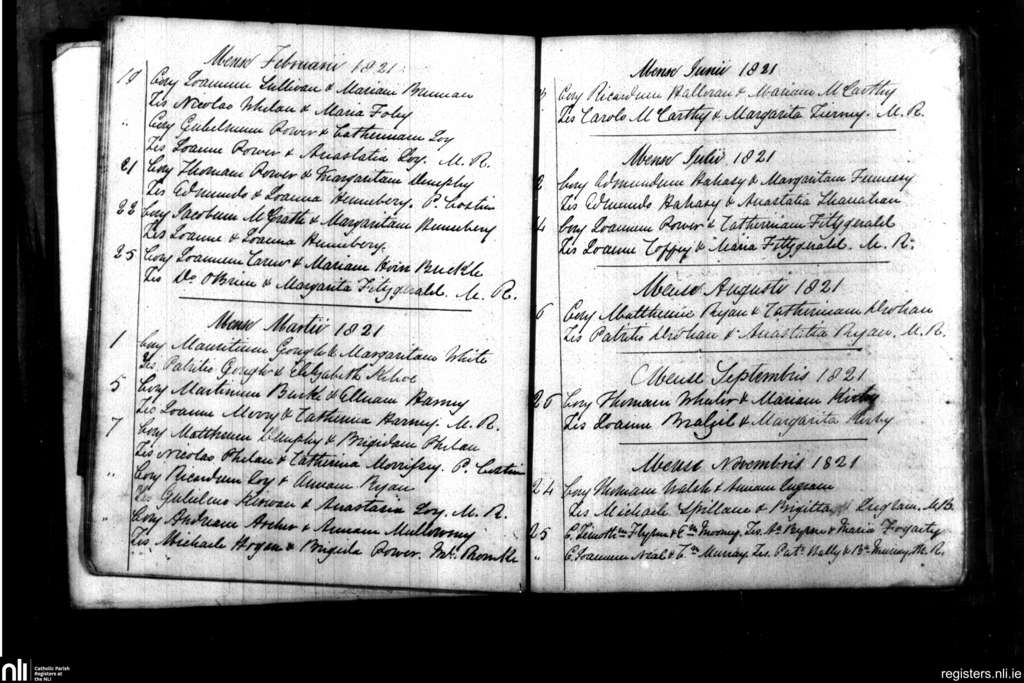 Mense Februarii 1821
19 Conj Joannem Sullivan & Mariam Brennan
Tes Nicolas Whelan & Maria Foley
" Conj Gulielmum Power & Catherinam Joy
Tes Joanne Power & Anastatia Joy. M. R.
21 Conj Thomam Power & Margaritam Dunphy
Tes Edmundo & Joanna Hennebery. P. Costin
22 Conj Jacobum McGrath & Margaritam Hennebery
Tes Joanne & Joanna Hennebery.
25 Conj Joannem Carew & Mariam Buckle
Tes Ds. OBrien & Margarita Fitzgerald. M. R.
Mense Martii 1821
1 Conj Mauritium Gough & Margaritam White
Tes Patritio Gough & Elizabeth Kehoe
5 Conj Martinum Burke & Elleniam Harny
Tes Joanne Morry & Catherina Harney. M. R.
7 Conj Mattheum Dunphy & Brigidam Phelan
Tes Nicolas Phelan & Catherina Morrissy. P. Costin
" Conj Ricardum Joy & Annam Ryan
Tes Gulielmo Kirwan & Anastasia Joy. M. R.
" Conj Andream Archer & Annam Mullowny
Tes Michaele Hogan & Brigida Power.
Mense Junii 1821
Conj Ricardum Halloran & Mariam McCarthy
Tes Carolo McCarthy & Margarita Tierney. M. R.
Mense Julii 1821
2 Conj Edmundum Hahasy & Margaritam Fennessy
Tes Edmundo Hahasy & Anastatia Shanahan
4 Conj Joannem Power & Catherinam Fitzgerald
Tes Joanne Coffey & Maria Fitzgerald. M. R.
Mense Augusti 1821
6 Conj Mattheum Ryan & Catherinam Drohan
Tes Patritio Drohan & Anastatia Ryan. M. R.
Mense Septembris 1821
26 Conj Thomam Whelan & Mariam Kirby
Tes Joanne Brazil & Margarita Kirby
Mense Novembris 1821
24 Conj Thomam Walsh & Annam Ingram
Tes Michaele Spillane & Brigitta Ingram. M.R.
25 C. Timothm Flynn & Cm Mooney. Tes. Byrne & Maria Fogarty
" C. Joannem Neal & Cm Murray. Tes. Patt Hally & Murray M. R.
nli Catholic Parish
Registers at
the NLI
registers.nli.ie